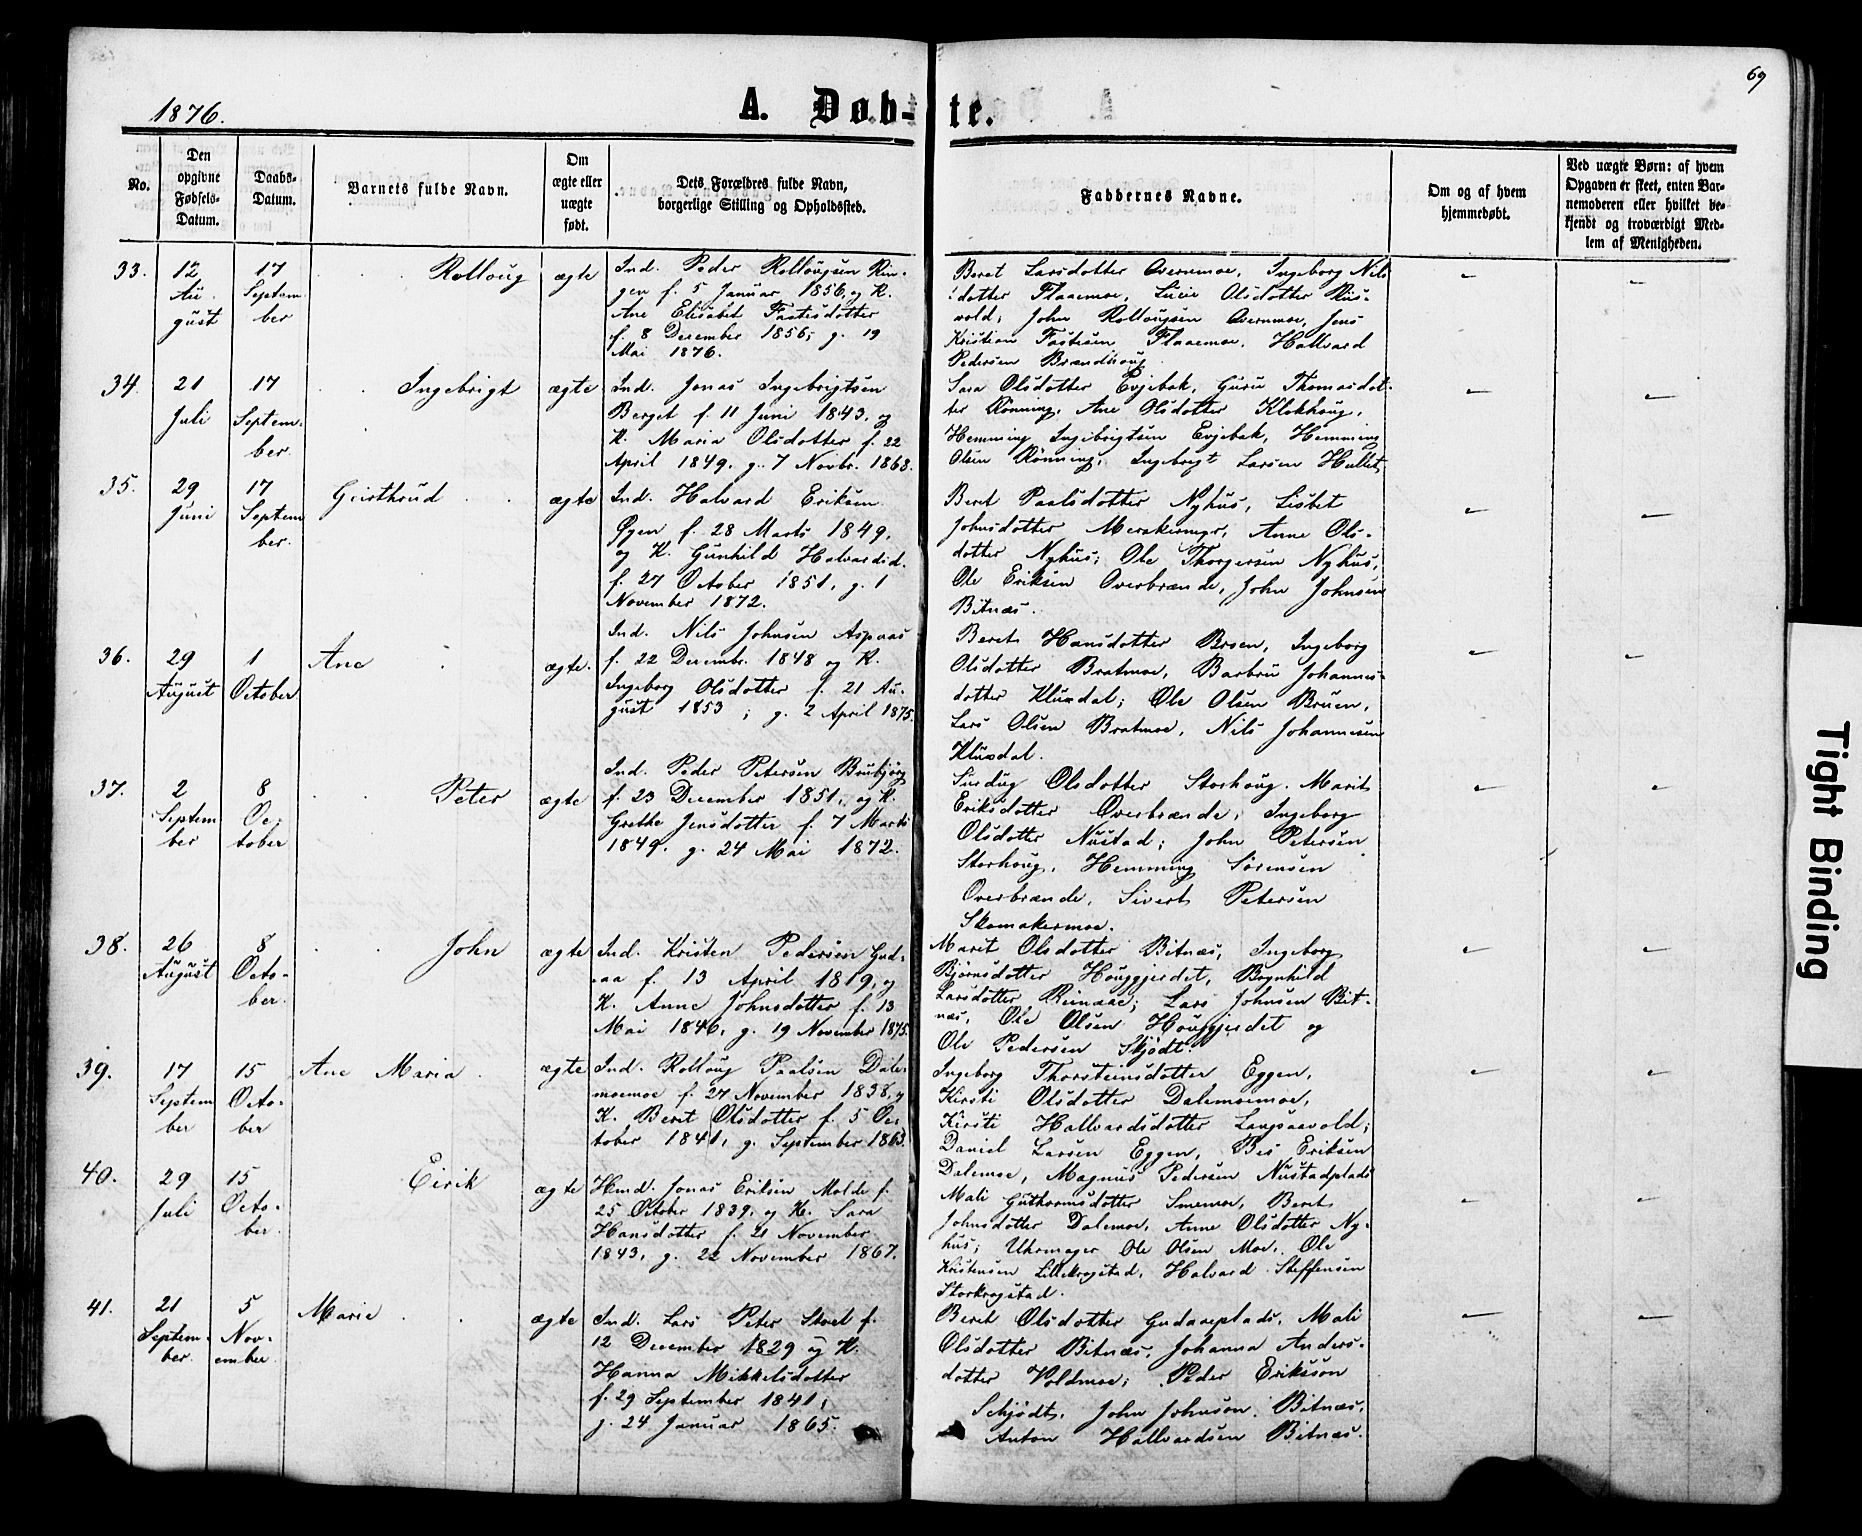 69
1876.
A. Døb-te.
No.
Den opgivne Fødsels-Datum.
Daabs-Datum.
Barnets fulde Navn.
Om ægte eller uægte født.
Dets Forældres fulde Navn, borgerlige Stilling og Opholdssted.
Faddernes Navne.
Om og af hvem hjemmedøbt.
Ved uægte Børn: af hvem Opgaven er skeet, enten Barnemoderen eller hvilket bekjendt og troværdigt Medlem af Menigheden.
33. 12 August 17 September Rolloug ægte
Ind. Peder Rollougsen Rin-
gen f. 5 Januar 1856, og K.
Ane Elisabet Fastisdotter
f. 8 December 1856; g. 19
Mai 1876.
Beret Larsdotter Overnmoe, Ingeborg Nils
dotter Flaaemoe, Lucie Olsdotter Riis-
vold; John Rollougsen Overnmoe, Jens
Kristian Fastisen Flaaemoe, Hallvard
Pedersen Brandhoug
34. 21 Juli 17 September. Ingebrigt ægte
Ind. Jonas Ingebrigtsen
Berget f. 11 Juni 1843, og
K. Maria Olsdotter f. 22
April 1849, g. 7 Novbr. 1868.
Sara Olsdotter Evjebak, Guru Thomasdot-
ter Rønning, Ane Olsdotter Klokhoug,
Hemming Ingebrigtsen Evjebak, Hemming
Olsen Rønning, Ingebrigt Larsen Hullet
35. 29 Juni 17 September. Geirthrud ægte
Ind. Halvard Eriksen
Øyen f. 28 Marts 1849,
og K. Gunhild Halvardsd.
f. 27 October 1851, g. 1
November 1872.
Beret Paalsdotter Nyhus, Lisbet
Johnsdotter Merakermyr, Anne Ols-
dotter Nyhus; Ole Thorgersen Nyhus,
Ole Eriksen Overbrænde, John Johnsen
Bitnæs.
36. 29 August 1 October Ane ægte.
Ind. Nils Johnsen Aspaas
f. 22 Decembr. 1848 og K.
Ingeborg Olsdotter f. 21 Au-
gust 1853; g. 2 April 1875.
Beret Hansdotter Brøen, Ingeborg
Olsdotter Bratmoe, Barbru Johannes-
dotter Kluxdal; Ole Olsen Bruen,
Lars Olsen Bratmoe, Nils Johannesen
Kluxdal.
37. 2 September 8 October Peter ægte
Ind. Peder Petersen Brubjørg
f. 23 December 1851, og K.
Grethe Jensdotter f. 7 Marts
1849. g. 24 Mai 1872.
Olsdotter Storhoug, Marit
Eriksdotter Overbrænde, Ingeborg
Olsdotter Nustad; John Petersen
Storhoug, Hemming Sørensen
Overbrænde, Sivert Petersen
Skomakermoe.
38. 26 August 8 October. John ægte
Ind. Kristen Pedersen Gud-
aa f. 13 April 1819, og
K. Anne Johnsdotter f. 13
Mai 1846, g. 19 November 1875.
Marit Olsdotter Bitnæs, Ingeborg
Bjørnsdotter Houggjerdet, Brynhild
Larsdotter; Lars Johnsen Bit-
næs, Ole Olsen Houggjerdet og
Ole Pedersen Skjødt.
39. 17 September 15 October Ane Maria ægte
Ind. Rolloug Paalsen Dale-
moemoe f. 27 November 1838, og
K. Beret Olsdotter f. 5 Oc-
tober 1841, g. September 1863.
Ingeborg Thorsteinsdotter Eggen,
Kirsti Olsdotter Dalemoemoe,
Kirsti Hallvardsdotter Langsaavold;
Daniel Larsen Eggen, Eriksen
Dalemoe, Magnus Pedersen Nustadplads
40. 29 Juli 15 October. Eirik ægte
Hmd. Jonas Eriksen Molde f.
25 October 1839, og K. Sara
Hansdotter f. 21 November
1843, g. 22 November 1867.
Mali Guthormsdotter Smemoe, Beret
Johnsdotter Dalemoe, Anne Olsdotter Ny-
hus; Uhrmager Ole Olsen Moe, Ole
Kristensen Lillekrogstad, Halvard Steffensen
Storkrogstad.
41. 21 September. 5 November Marie ægte
Ind. Lars Peter Stoel f.
12 December 1829 og K.
Hanna Mikkelsdotter
f. 29 September 1841;
g. 24 Januar 1865.
Beret Olsdotter Gudaaeplads, Mali
Olsdotter Bitnæs, Johanna Anders-
dotter Voldmoe; Peder Eriksson
Schjødt, John Johnson Bitnæs,
Anton Hallvardsen Bitnæs.
Tight Binding